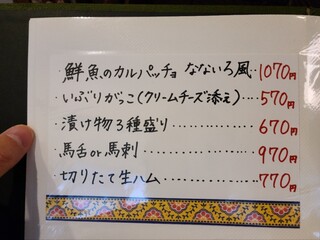 ・鮮魚のカルパッチョ なないろ風‥1070円
・いぶりがっこ(クリームチーズ添え)‥570円
・漬け物3種盛り‥‥‥‥‥670円
・馬舌or馬刺‥‥‥‥‥‥970円
・切りたて生ハム‥‥‥‥‥770円